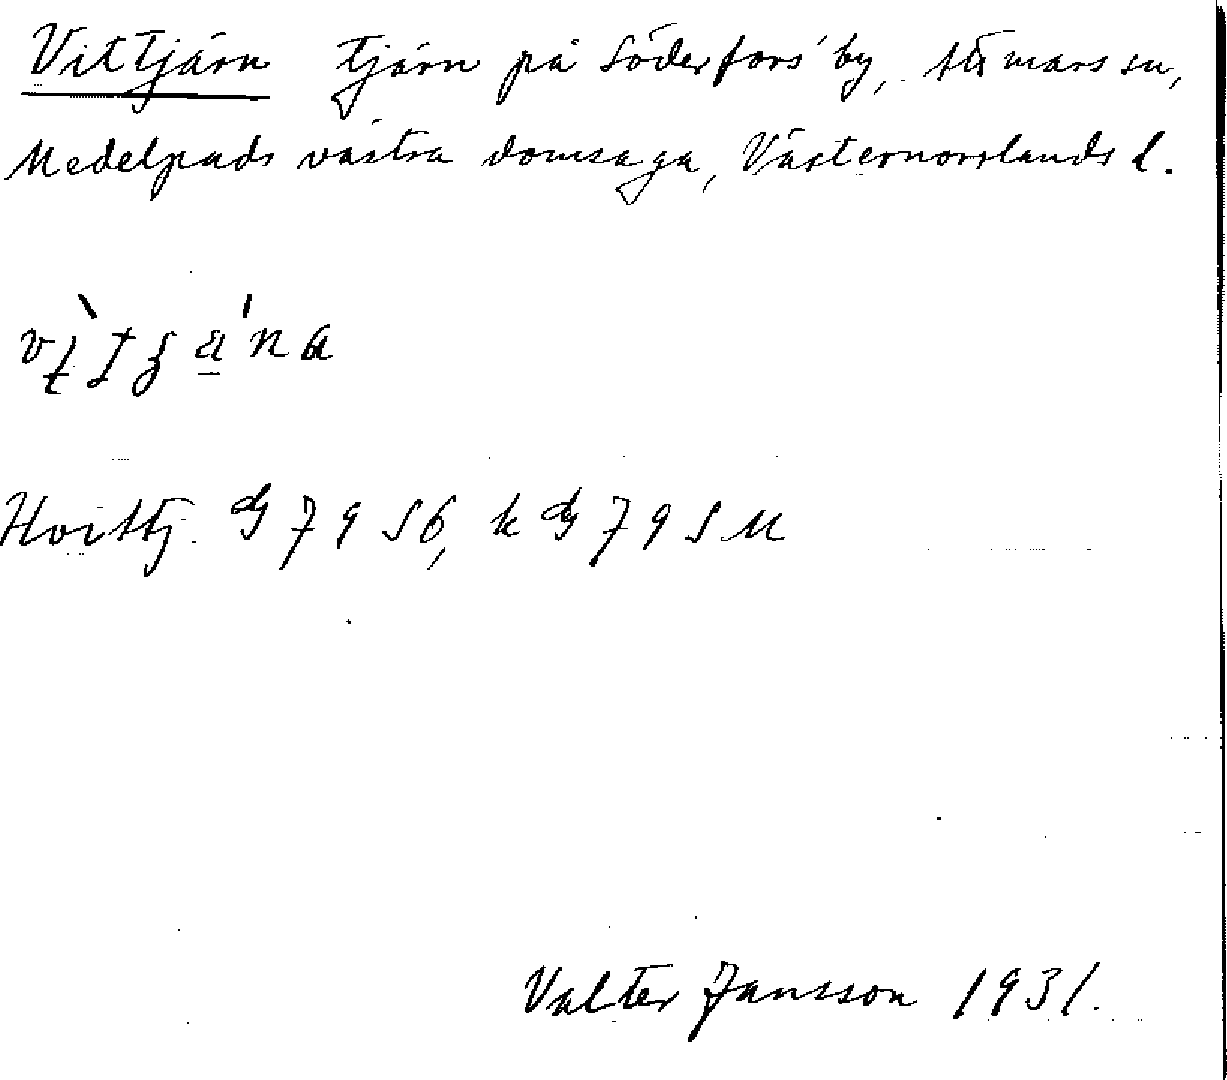 Vittjärn tjärn på Söderfors' by, Stömars sn,
Medelpads västra domsaga, Västernorrlands l.
Horttj. G 7 9 S 6, k G 7 9 S M
Valter Jansson 1931.